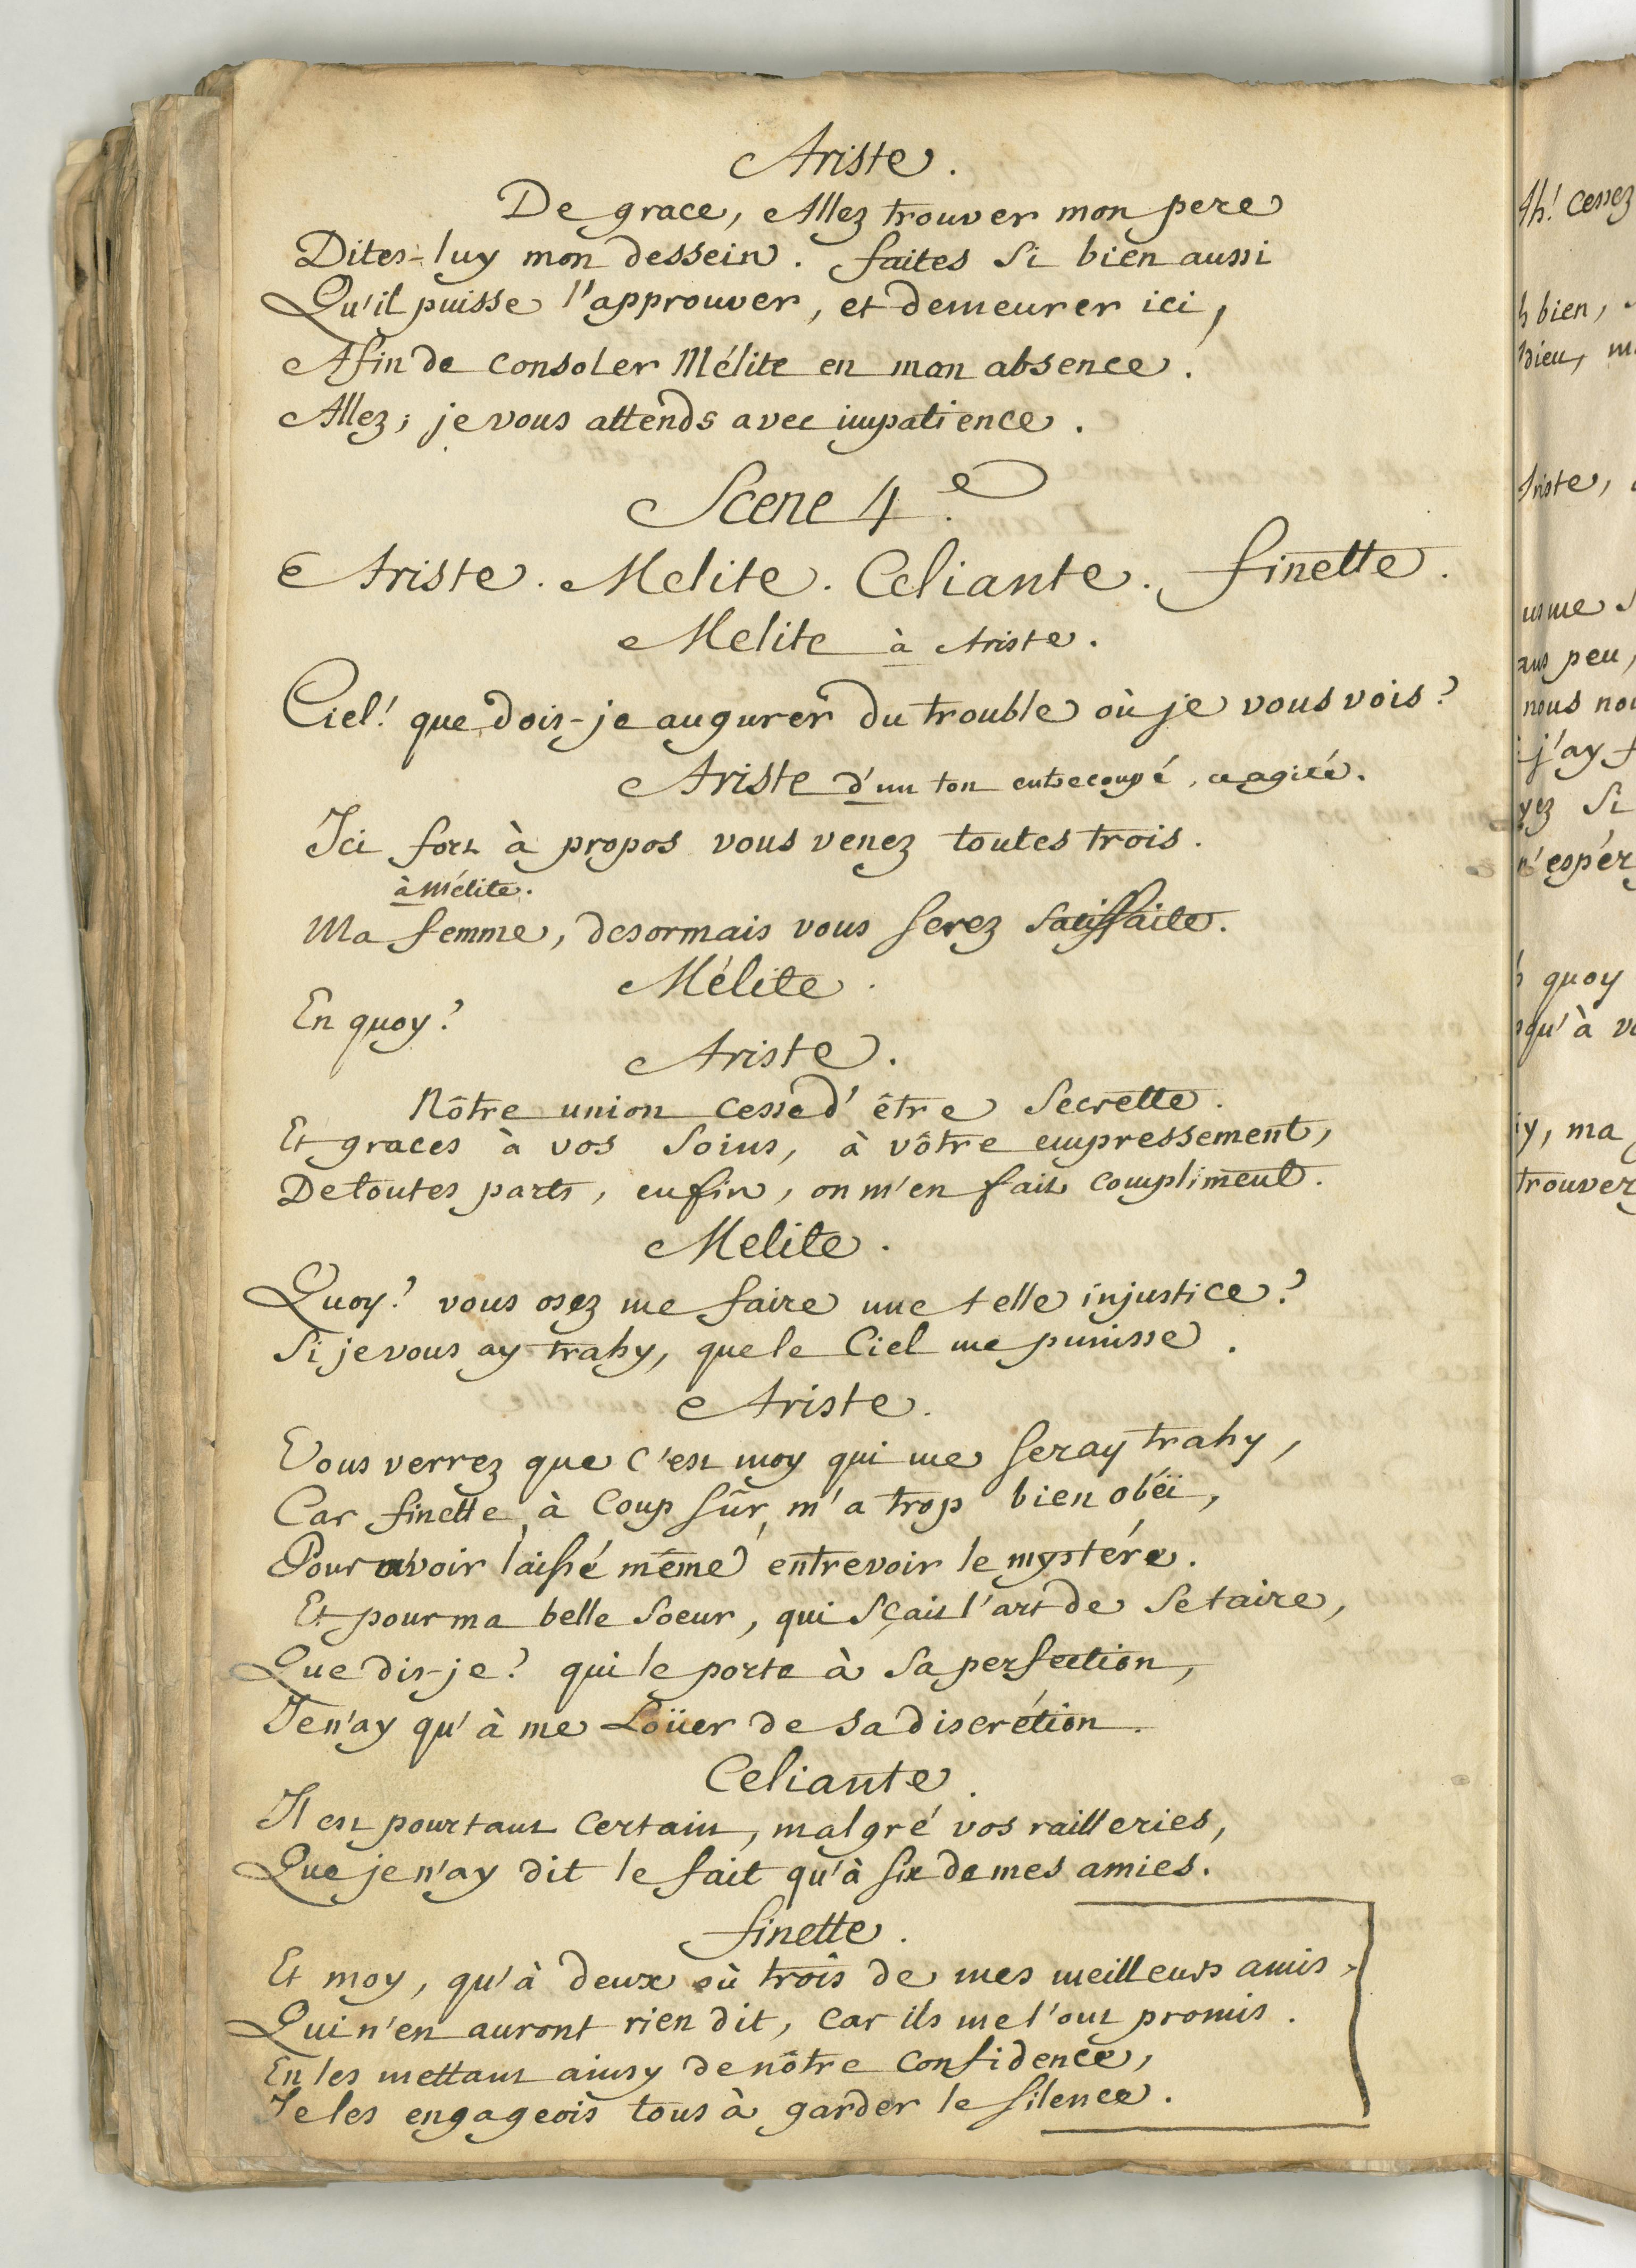 Ariste.
De grace, Allez trouver mon pere
Dites-luy mon dessein. faites si bien aussi
Qu'il puisse l'approuver, et demeurer ici,
Afin de consoler Mélite en mon absence.
Allez; je vous attends avec impatience.
Scene 4.e
Ariste. Melite. Celiante. finette.
Melite à Ariste.
Ciel! que dois-je augurer du trouble où je vous vois?
Ariste d'un ton entrecoupé, et agité.
Ici fort à propos vous venez toutes trois.
à Mélite.
Ma femme, desormais vous serez satisfaite.
Mélite.
En quoy?
Ariste.
Nôtre union cesse d'être secrette.
Et graces à vos soins, à vôtre empressement,
De toutes parts, enfin, on m'en fait compliment.
Melite.
Quoy? vous osez me faire une telle injustice?
Si je vous ay trahy, que le Ciel me punisse.
Ariste.
Vous verrez que c'est moy qui me seray trahy,
Car finette, à coup sûr, m'a trop bien obéï,
Pour avoir laissé même entrevoir le mystére.
Et pour ma belle soeur, qui sçait l'art de se taire,
Que dis-je? qui le porte à sa perfection,
Je n'ay qu'à me Loüer de sa discrétion.
Celiante.
Il est pourtant certain, malgré vos railleries,
Que je n'ay dit le fait qu'à six de mes amies.
finette.
Et moy, qu'à deux où trois de mes meilleurs amis,
Qui n'en auront rien dit, car ils me l'ont promis.
En les mettant ainsy de nôtre confidence,
Je les engageois tous à garder le silence.
Ah! cessez
bien,
Dieu,
Ariste,
peu,
nous
j'ay
si
n'espér
quoy
qu'à
ma
trouver